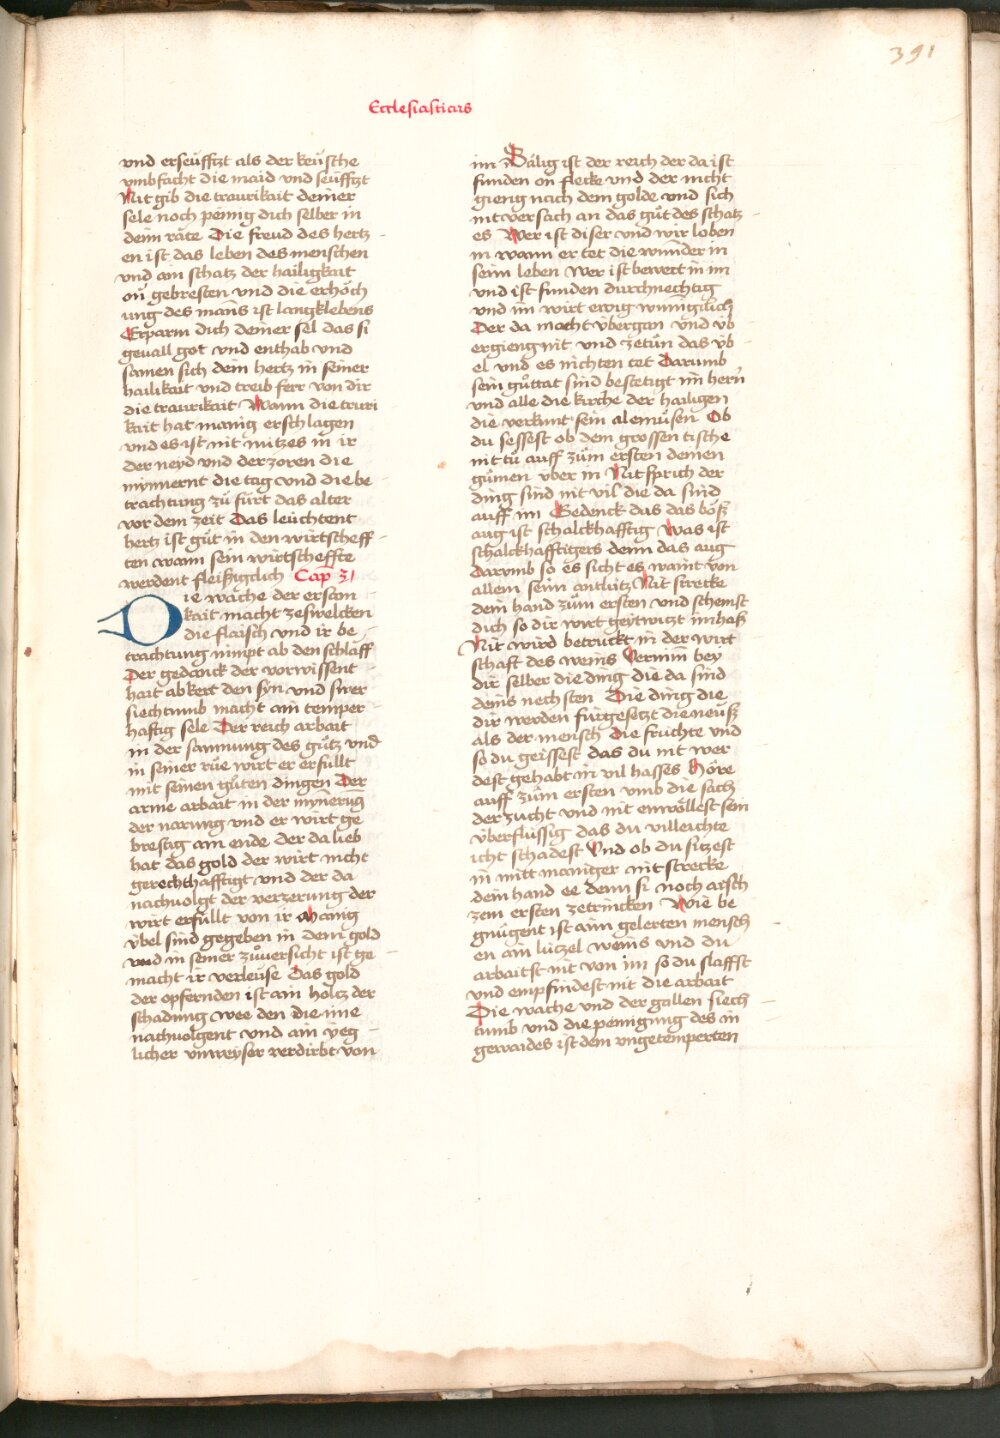 391
Ecclesiasticus
vnd erseüffizt als der keüsche
vmbfacht die maid vnd seüffizt
Nit gib die traurikait deiner
sele noch peinig dich selber in
deim räte Die freud des hertz
en ist das leben des menschen
vnd ain schatz der hailigkait
on gebresten vnd die erhöch
ung des mans ist langklebens
Erparm dich deiner sel das si
geuall got vnd enthab vnd
samen sich dein hertz in seiner
hailikait vnd treib ferr von dir
die traurikait Wann die trauri
kait hat manig erschlagen
vnd es ist nit nützes in ir
der neyd vnd der zoren die
mynnernt die tag vnd die be
trachtung zů fürt das alter
vor dem zeit Das leüchtent
hertz ist gůt in den wirtscheff
ten wann sein wirtscheffte
werdent fleissigclich Cap 31
Die wache der erson
kait macht zeswelcken
die flaisch vnd ir be
trachtung nimpt ab den schlaff
Der gedanck der vorwissent
hait abkert den syn vnd swer
siechtumb macht ain temper
hafftig sele Der reich arbait
in der samnung des gůtz vnd
in seiner růe wirt er erfüllt
mit seinen gůten dingen Der
arme arbait in der mynnerung
der narung vnd er wirt ge
brestig am ende der da lieb
hat das gold der wirt nicht
gerechthafftigt vnd der da
nachuolgt der verzerung der
wirt erfüllt von ir Manig
übel sind gegeben in dem gold
vnd in seiner zuuersicht ist ge
macht ir verleüse Das gold
der opfernden ist ain holtz der
schadung wee den die ime
nachuolgent vnd ain yeg
licher vnweyser verdirbt von
im Sälig ist der reich der da ist
funden on flecke vnd der nicht
gieng nach dem golde vnd sich
nit versach an das gůt des schatz
es Wer ist diser vnd wir loben
in wann er tet die wunder in
seim leben Wer ist bewert in im
vnd ist funden durchnechtig
vnd im wirt ewig wunnigclich
Der da mocht übergan vnd üb
ergieng nit vnd zetůn das üb
el vnd es nichten tet Darumb
sein gůttat sind bestetigt im hern
vnd alle die kirche der hailigen
die verkünt sein alemůsen Ob
du sessest ob dem grossen tische
nit tů auff zům ersten deinen
gůmen über in Nit sprich der
ding sind nit vil die da sind
auff im Gedenck das das böß
aug ist schalckhafftig Was ist
schalckhafftigers denn das aug
Darumb so es sicht es waint von
allem seim antlütz Nit strecke
dein hand zům ersten vnd schemst
dich so dir wirt geytwizt im haß
Nit wird betruckt in der wirt
schaft des weins Vernim bey
dir selber die ding die da sind
deins nechsten Die ding die
dir werden fürgesetzt die neüß
als der mensch die früchte vnd
so du geissest das du nit wer
dest gehabt in vil hasses Höre
auff zům ersten vmb die sach
der zucht vnd nit enwöllest sein
überflüssig das du villeichte
icht schadest Vnd ob du sitzest
in mitt maniger nit strecke
dein hand ee denn si noch aisch
zem ersten zetrincken Wie be
gnůgent ist aim gelerten mensch
en ain lützel weins vnd du
arbaitst nit von im so du slaffst
vnd empfindest nit die arbait
Die wache vnd der gallen siech
tumb vnd die peinigung des in
gewaides ist dem vngetemperten